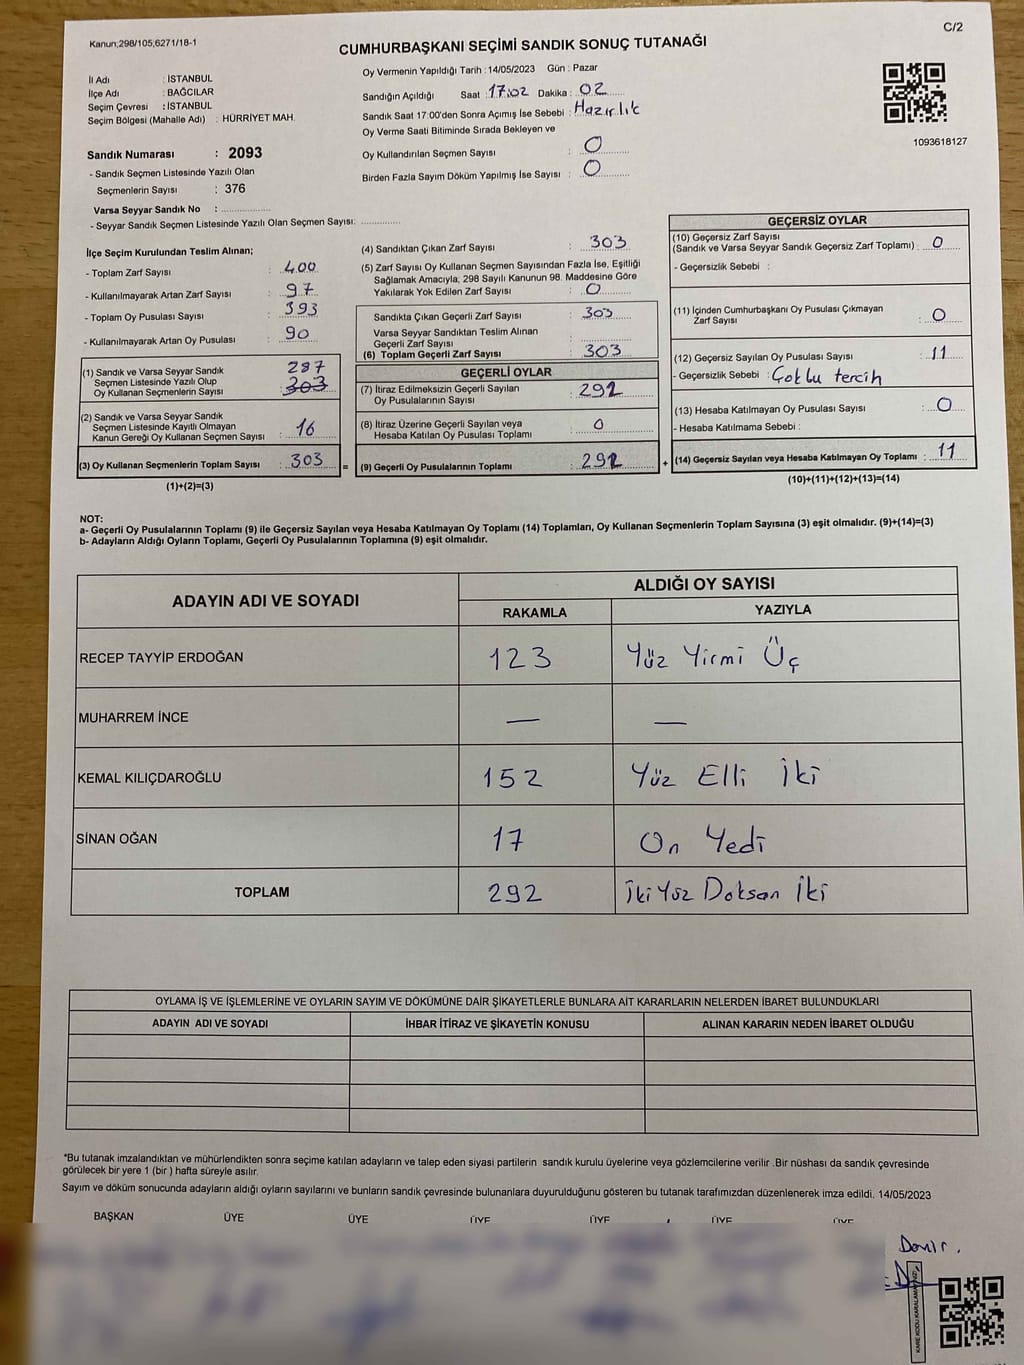 Kanun;298/105,6271/18-1
C/2
CUMHURBAŞKANI SEÇİMİ SANDIK SONUÇ TUTANAĞI
İl Adı : İSTANBUL
İlçe Adı : BAĞCILAR
Seçim Çevresi : İSTANBUL
Seçim Bölgesi (Mahalle Adı) : HÜRRİYET MAH.
Sandık Numarası : 2093
- Sandık Seçmen Listesinde Yazılı Olan
Seçmenlerin Sayısı : 376
Varsa Seyyar Sandık No : ....................
- Seyyar Sandık Seçmen Listesinde Yazılı Olan Seçmen Sayısı: ..............
Oy Vermenin Yapıldığı Tarih : 14/05/2023 Gün : Pazar
Sandığın Açıldığı Saat : 17:02 Dakika : 02
Sandık Saat 17:00'den Sonra Açımış İse Sebebi : Hazırlık
Oy Verme Saati Bitiminde Sırada Bekleyen ve
Oy Kullandırılan Seçmen Sayısı : 0
Birden Fazla Sayım Döküm Yapılmış İse Sayısı : 0
1093618127
İlçe Seçim Kurulundan Teslim Alınan;
- Toplam Zarf Sayısı : 400
- Kullanılmayarak Artan Zarf Sayısı : 97
- Toplam Oy Pusulası Sayısı : 393
- Kullanılmayarak Artan Oy Pusulası : 90
(1) Sandık ve Varsa Seyyar Sandık 287
Seçmen Listesinde Yazılı Olup
Oy Kullanan Seçmenlerin Sayısı : 303
(2) Sandık ve Varsa Seyyar Sandık
Seçmen Listesinde Kayıtlı Olmayan
Kanun Gereği Oy Kullanan Seçmen Sayısı : 16
(3) Oy Kullanan Seçmenlerin Toplam Sayısı : 303 =
(1)+(2)=(3)
(4) Sandıktan Çıkan Zarf Sayısı : 303
(5) Zarf Sayısı Oy Kullanan Seçmen Sayısından Fazla İse, Eşitliği
Sağlamak Amacıyla; 298 Sayılı Kanunun 98. Maddesine Göre
Yakılarak Yok Edilen Zarf Sayısı : 0
Sandıkta Çıkan Geçerli Zarf Sayısı : 303
Varsa Seyyar Sandıktan Teslim Alınan
Geçerli Zarf Sayısı :
(6) Toplam Geçerli Zarf Sayısı : 303
GEÇERLİ OYLAR
(7) İtiraz Edilmeksizin Geçerli Sayılan : 292
Oy Pusulalarının Sayısı
(8) İtiraz Üzerine Geçerli Sayılan veya : 0
Hesaba Katılan Oy Pusulaları Toplamı
(9) Geçerli Oy Pusulalarının Toplamı : 292 +
GEÇERSİZ OYLAR
(10) Geçersiz Zarf Sayısı
(Sandık ve Varsa Seyyar Sandık Geçersiz Zarf Toplamı) : 0
- Geçersizlik Sebebi :
(11) İçinden Cumhurbaşkanı Oy Pusulası Çıkmayan
Zarf Sayısı : 0
(12) Geçersiz Sayılan Oy Pusulası Sayısı : 11
- Geçersizlik Sebebi : Çoklu tercih
(13) Hesaba Katılmayan Oy Pusulası Sayısı : 0
- Hesaba Katılmama Sebebi :
(14) Geçersiz Sayılan veya Hesaba Katılmayan Oy Toplamı : 11
(10)+(11)+(12)+(13)=(14)
NOT:
a- Geçerli Oy Pusulalarının Toplamı (9) ile Geçersiz Sayılan veya Hesaba Katılmayan Oy Toplamı (14) Toplamları, Oy Kullanan Seçmenlerin Toplam Sayısına (3) eşit olmalıdır. (9)+(14)=(3)
b- Adayların Aldığı Oyların Toplamı, Geçerli Oy Pusulalarının Toplamına (9) eşit olmalıdır.
ADAYIN ADI VE SOYADI
ALDIĞI OY SAYISI
RAKAMLA YAZIYLA
RECEP TAYYİP ERDOĞAN 123 Yüz Yirmi Üç
MUHARREM İNCE — —
KEMAL KILIÇDAROĞLU 152 Yüz Elli İki
SİNAN OĞAN 17 On Yedi
TOPLAM 292 İki Yüz Doksan İki
OYLAMA İŞ VE İŞLEMLERİNE VE OYLARIN SAYIM VE DÖKÜMÜNE DAİR ŞİKAYETLERLE BUNLARA AİT KARARLARIN NELERDEN İBARET BULUNDUKLARI
ADAYIN ADI VE SOYADI İHBAR İTİRAZ VE ŞİKAYETİN KONUSU ALINAN KARARIN NEDEN İBARET OLDUĞU
*Bu tutanak imzalandıktan ve mühürlendikten sonra seçime katılan adayların ve talep eden siyasi partilerin sandık kurulu üyelerine veya gözlemcilerine verilir .Bir nüshası da sandık çevresinde
görülecek bir yere 1 (bir ) hafta süreyle asılır.
Sayım ve döküm sonucunda adayların aldığı oyların sayılarını ve bunların sandık çevresinde bulunanlara duyurulduğunu gösteren bu tutanak tarafımızdan düzenlenerek imza edildi. 14/05/2023
BAŞKAN ÜYE ÜYE ÜYE ÜYE ÜYE ÜYE